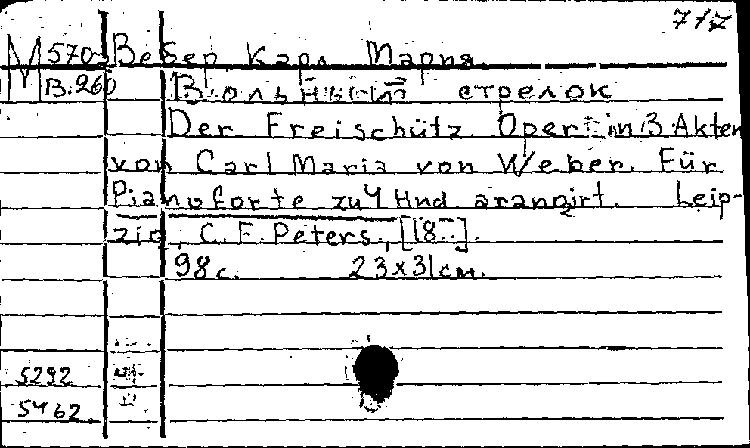 7/7
М 570 Вебер Карл Мария.
В.260 Вольный стрелок
Der Freischütz Oper in 3 Akten
von Carl Maria von Weber. Für
Pianoforte zu 4 Hnd arangirt. Leip-
zig, C. F. Peters, [18..].
98с. 23x31см.
5292
5462